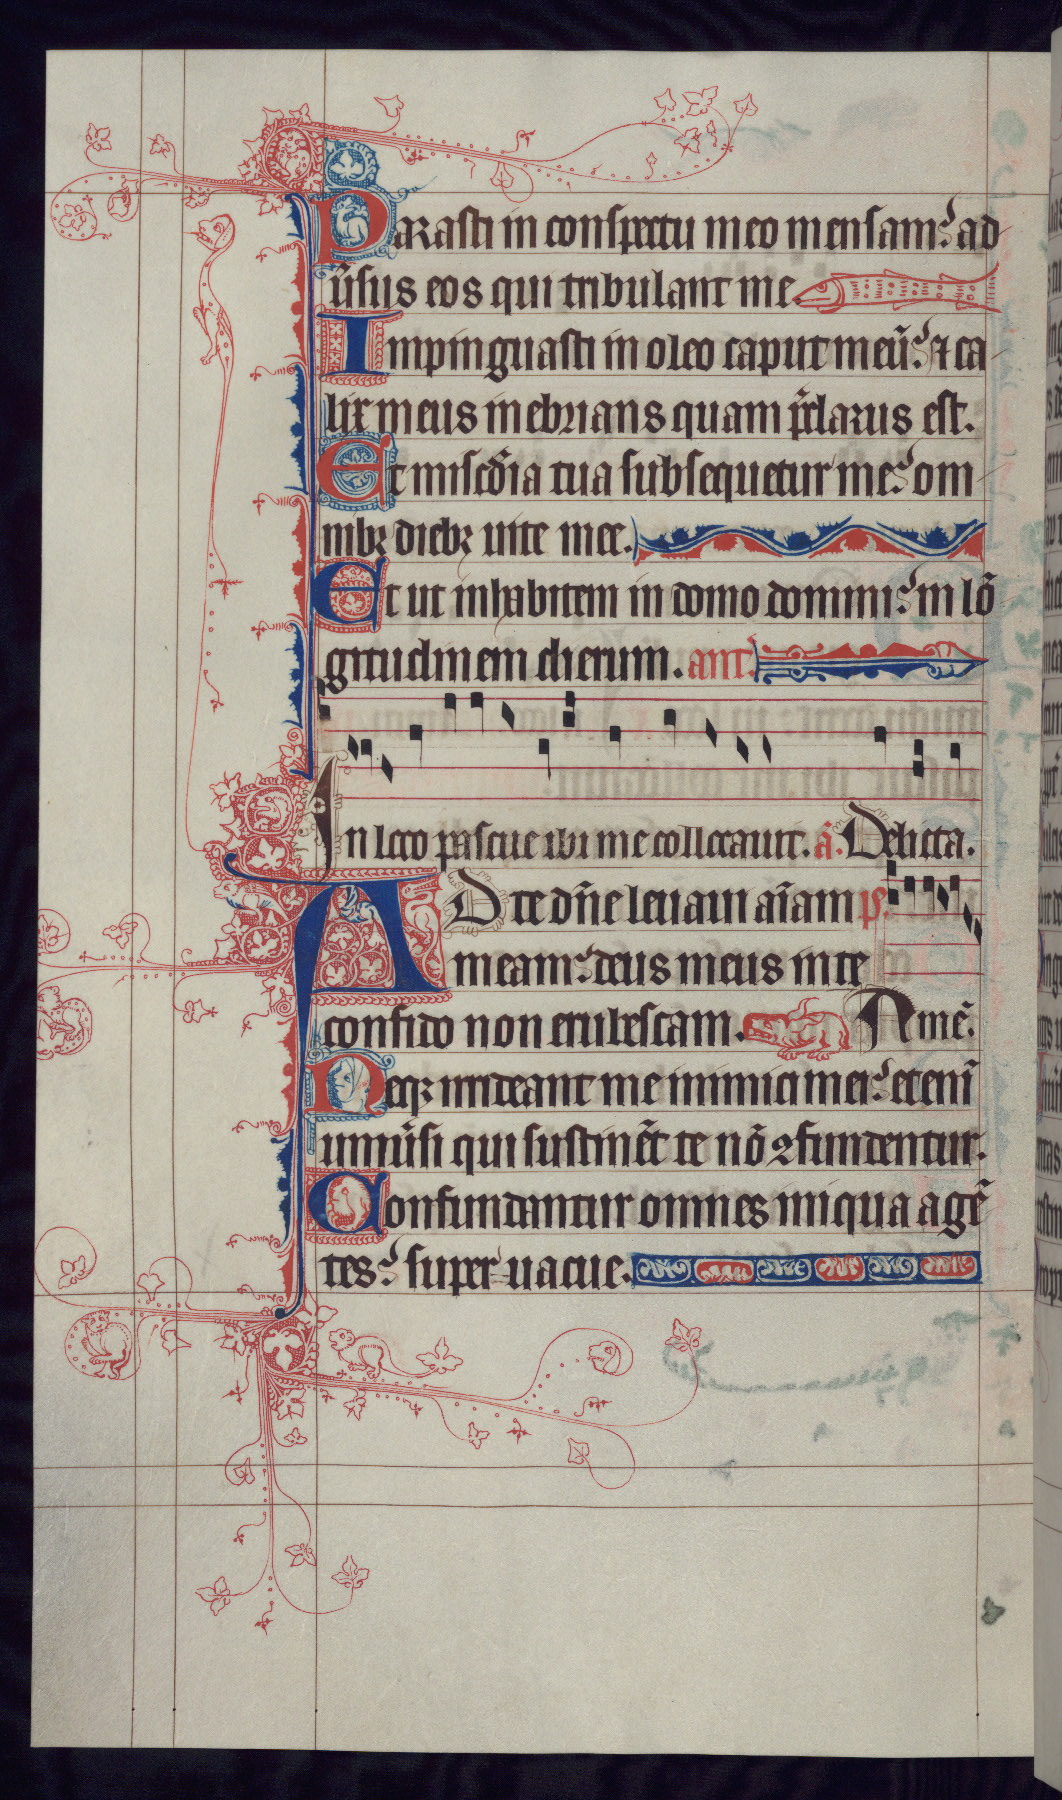 Parasti in conspectu meo mensam: ad
ũsus eos qui tribulant me.
Impinguasti in oleo caput meũ: ⁊ ca
lix meus inebrians quam p̃clarus est.
Et misc̃dia tua subsequetur me: om
nibꝫ diebꝫ uite mee.
Et ut inhabitem in domo domini: in lõ
gitudinem dierum. ant.
In loco pascue ibi me collocauit. a͂. Delicta.
AD te dñe leuaui aĩam ps
meam: deus meus in te
confido non erubescam. Nime᷑.
Neqꝫ irrideant me inimici mei: eteni᷑
uniũsi qui sustinẽt te nõ ꝯfundentur.
Confundantur omnes iniqua agẽ
tes: super uacue.